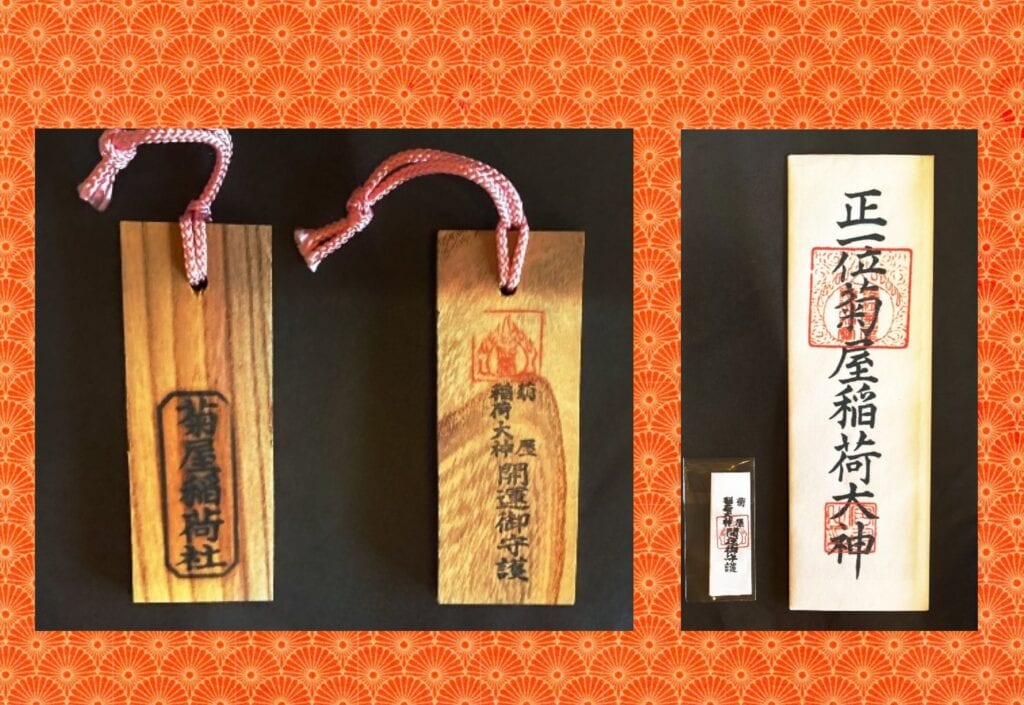 菊屋稲荷社
菊屋
稲荷大神
開運御守護
菊屋
稲荷大神
開運御守護
正一位菊屋稲荷大神